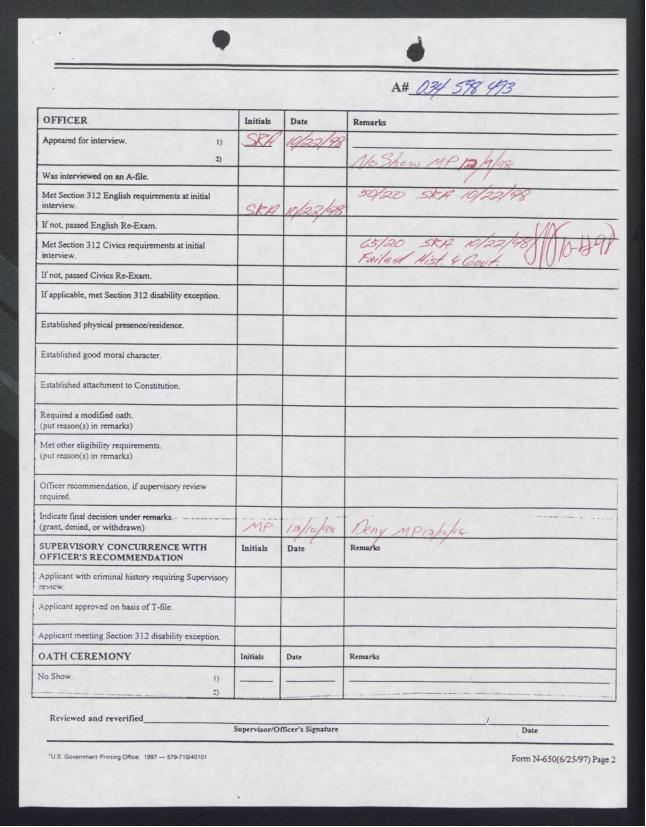 A# 034 598 493
OFFICER Initials Date Remarks
Appeared for interview. 1) SKA 10/22/98
2) No Show MP 12/9/98
Was interviewed on an A-file.
Met Section 312 English requirements at initial 50/20 SKA 10/22/98
interview. SKA 10/22/98
If not, passed English Re-Exam.
Met Section 312 Civics requirements at initial 65/20 SKA 10/22/98
interview. Failed Hist. & Govt.
If not, passed Civics Re-Exam.
If applicable, met Section 312 disability exception.
Established physical presence/residence.
Established good moral character.
Established attachment to Constitution.
Required a modified oath.
(put reason(s) in remarks)
Met other eligibility requirements.
(put reason(s) in remarks)
Officer recommendation, if supervisory review
required.
Indicate final decision under remarks.
(grant, denied, or withdrawn) MP 12/10/98 Deny MP 12/10/98
SUPERVISORY CONCURRENCE WITH Initials Date Remarks
OFFICER'S RECOMMENDATION
Applicant with criminal history requiring Supervisory
review.
Applicant approved on basis of T-file.
Applicant meeting Section 312 disability exception.
OATH CEREMONY Initials Date Remarks
No Show. 1)
2)
Reviewed and reverified /
Supervisor/Officer's Signature Date
*U.S. Government Printing Office: 1997 — 579-710/40101 Form N-650(6/25/97) Page 2